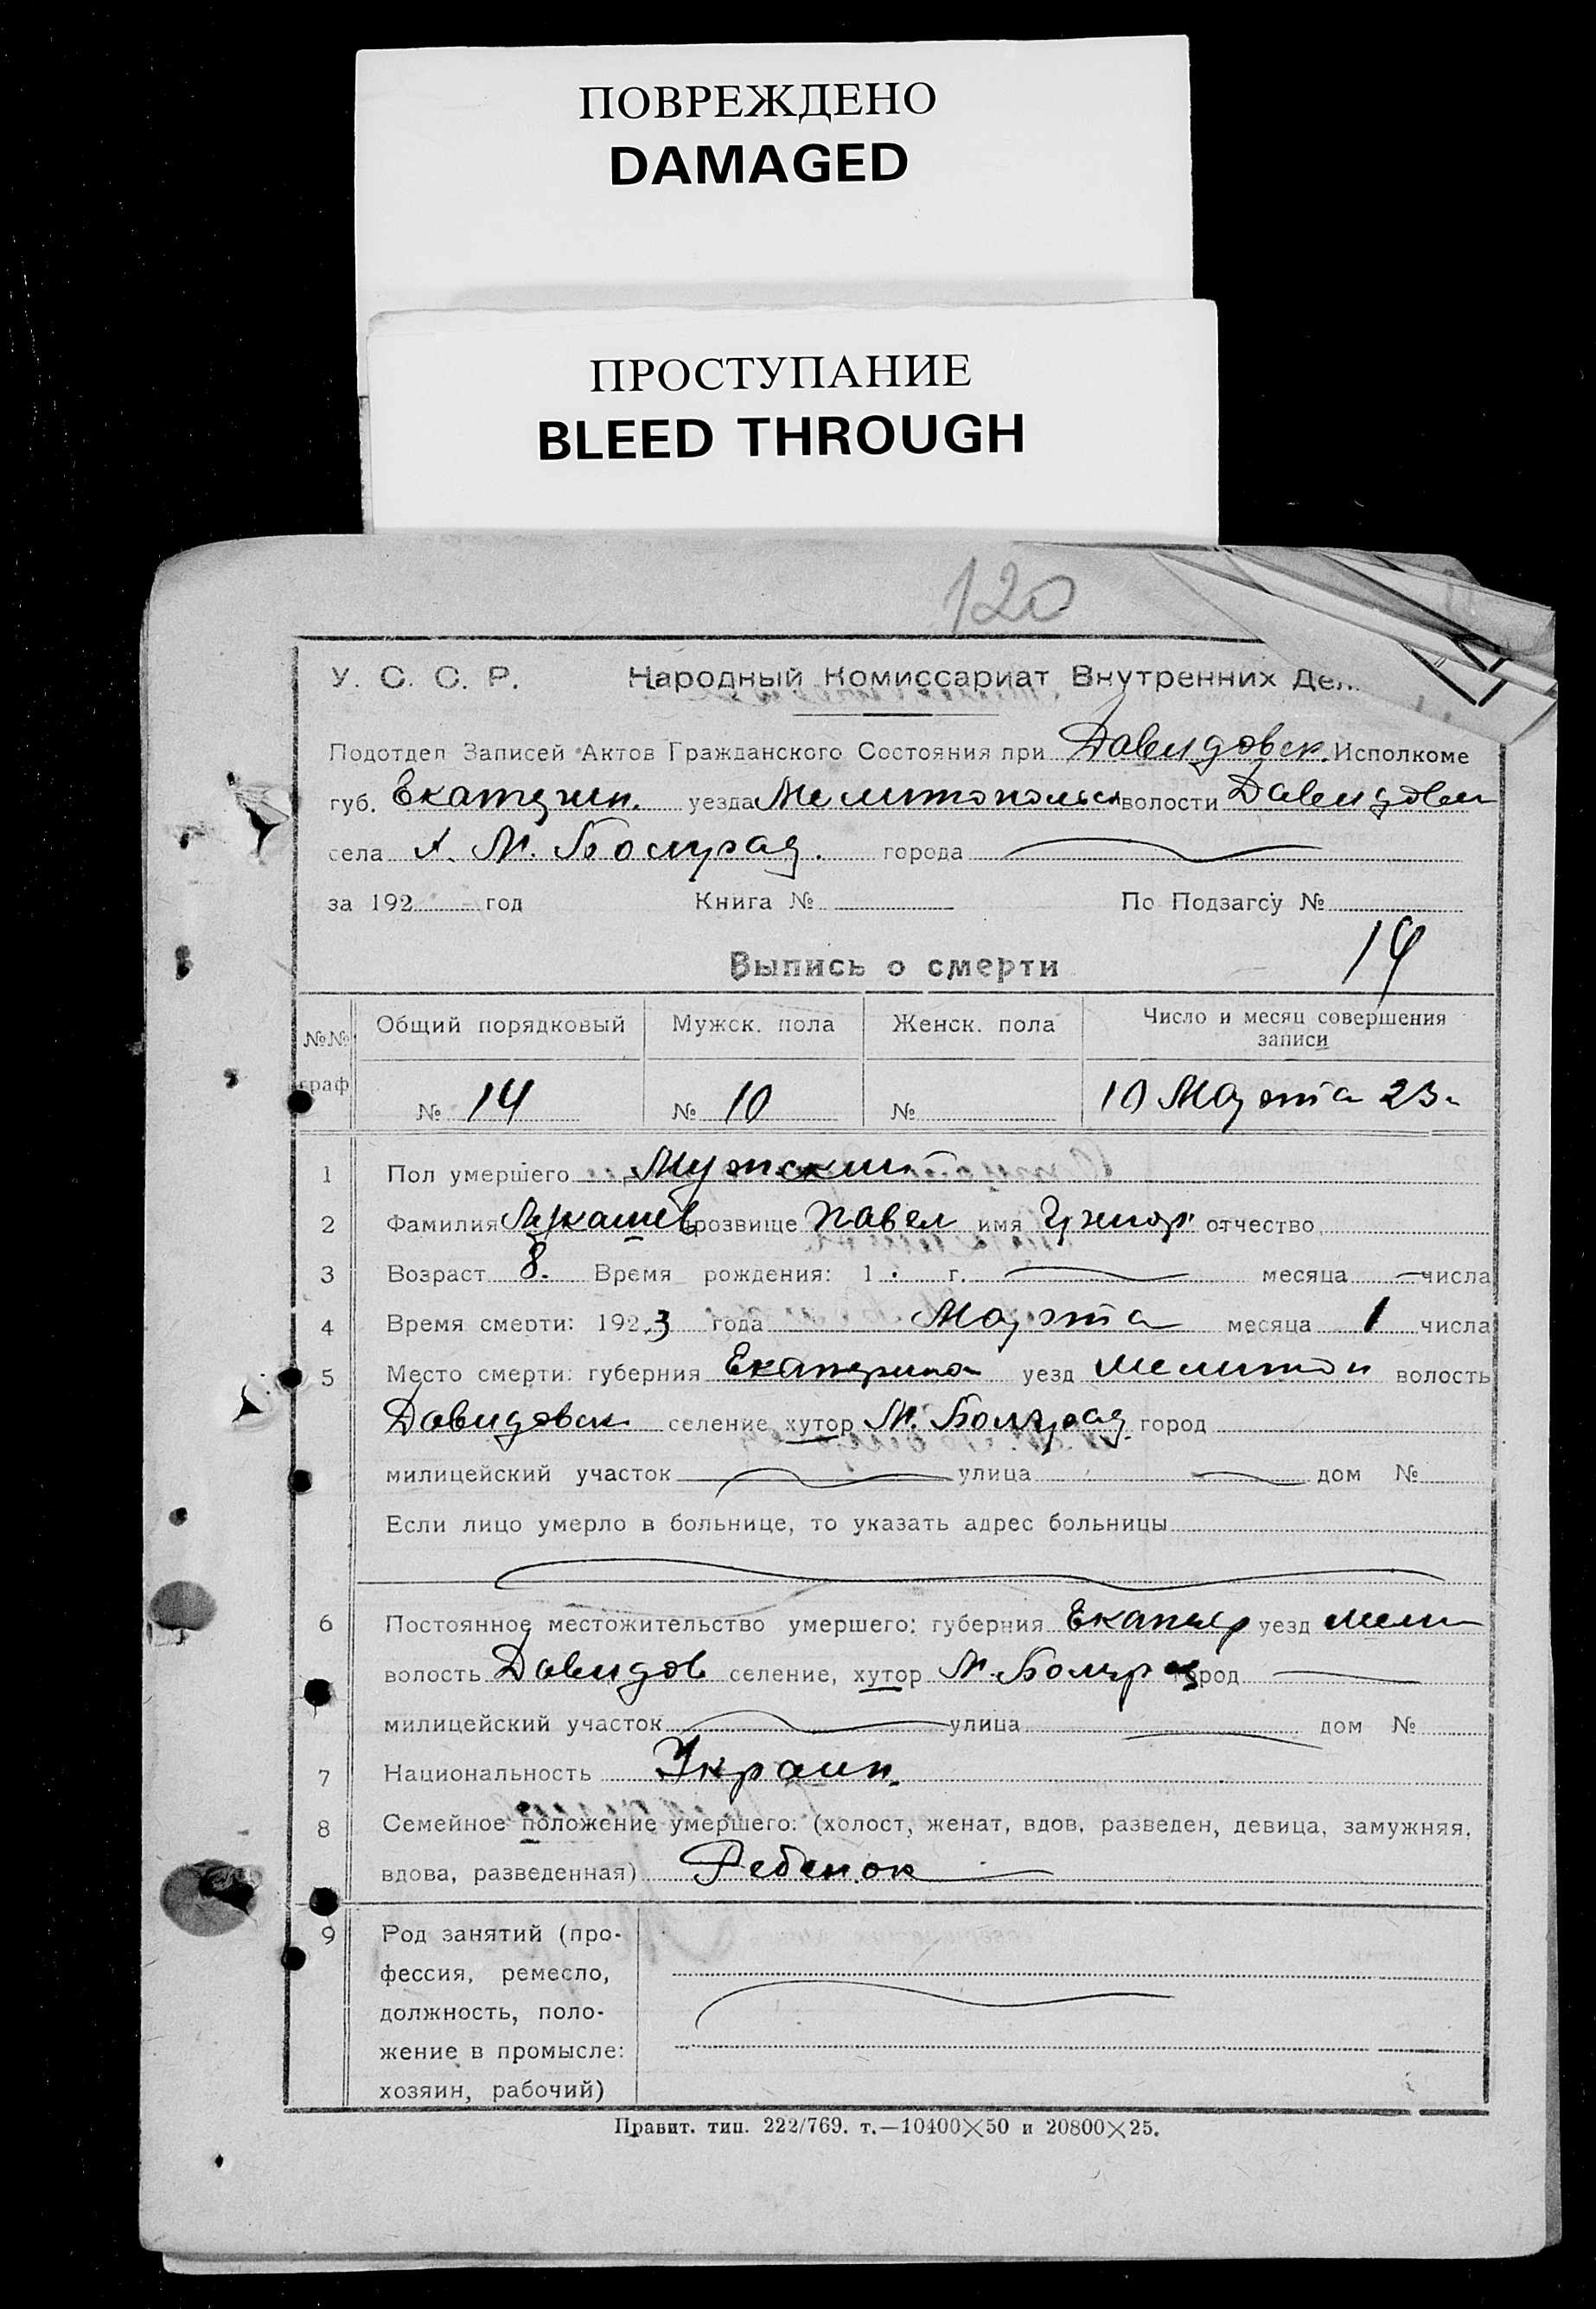 ПОВРЕЖДЕНО
DAMAGED
ПРОСТУПАНИЕ
BLEED THROUGH
120
У. С. С. Р. Народный Комиссариат Внутренних Дел
Подотдел Записей Актов Гражданского Состояния при Давидовск. Исполкоме
губ. Екатерин. уезда Мелитопольск волости Давидовск
села х. М. Болград. города
за 192 год Книга № По Подзагсу №
14
Выпись о смерти
№№ граф Общий порядковый Мужск. пола Женск. пола Число и месяц совершения записи
№ 14 № 10 № 10 Марта 23 г
1 Пол умершего Мужский
2 Фамилия Лукашев прозвище Павел имя отчество
3 Возраст 8. Время рождения: 1 г. месяца числа
4 Время смерти: 1923 года Марта месяца 1 числа
5 Место смерти: губерния Екатерино уезд Мелитоп волость
Давидовск селение хутор М. Болград город
милицейский участок улица дом №
Если лицо умерло в больнице, то указать адрес больницы
6 Постоянное местожительство умершего: губерния Екатер уезд Мели
волость Давидов селение, хутор М. Болград город
милицейский участок улица дом №
7 Национальность Украин.
8 Семейное положение умершего: (холост, женат, вдов, разведен, девица, замужняя,
вдова, разведенная) Ребенок
9 Род занятий (про-
фессия, ремесло,
должность, поло-
жение в промысле:
хозяин, рабочий)
Правит. тип. 222/769. т.—10400×50 и 20800×25.